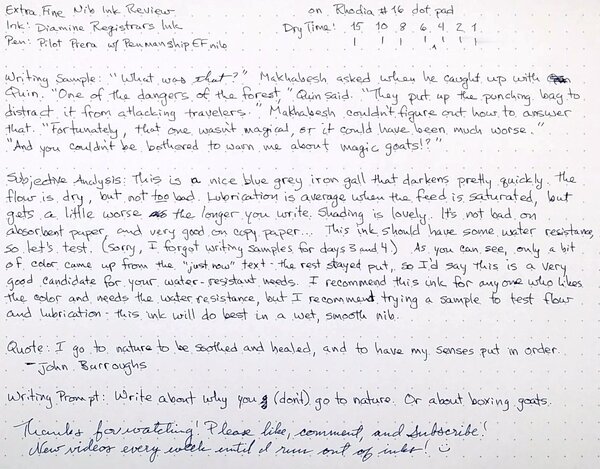 Extra Fine Nib Ink Review on Rhodia #16 dot pad
Ink: Diamine Registrars Ink Dry Time: 15 10 8 6 4 2 1
Pen: Pilot Prera w/ Penmanship EF nib
Writing Sample: "What was that?" Makhabesh asked when he caught up with
Quin. "One of the dangers of the forest," Quin said. "They put up the punching bag to
distract it from attacking travelers." Makhabesh couldn't figure out how to answer
that. "Fortunately, that one wasn't magical, or it could have been much worse."
"And you couldn't be bothered to warn me about magic goats!?"
Subjective Analysis: This is a nice blue grey iron gall that darkens pretty quickly. The
flow is dry, but not too bad. Lubrication is average when the feed is saturated, but
gets a little worse the longer you write. Shading is lovely. It's not bad on
absorbent paper, and very good on copy paper... This ink should have some water resistance,
so let's test. (Sorry, I forgot writing samples for days 3 and 4) As you can see, only a bit
of color came up from the "just now" text - the rest stayed put, so I'd say this is a very
good candidate for your water-resistant needs. I recommend this ink for anyone who likes
the color and needs the water resistance, but I recommend trying a sample to test flow
and lubrication - this ink will do best in a wet, smooth nib.
Quote: I go to nature to be soothed and healed, and to have my senses put in order.
- John Burroughs
Writing Prompt: Write about why you (don't) go to nature. Or about boxing goats.
Thanks for watching! Please like, comment, and subscribe!
New videos every week until I run out of inks! :)